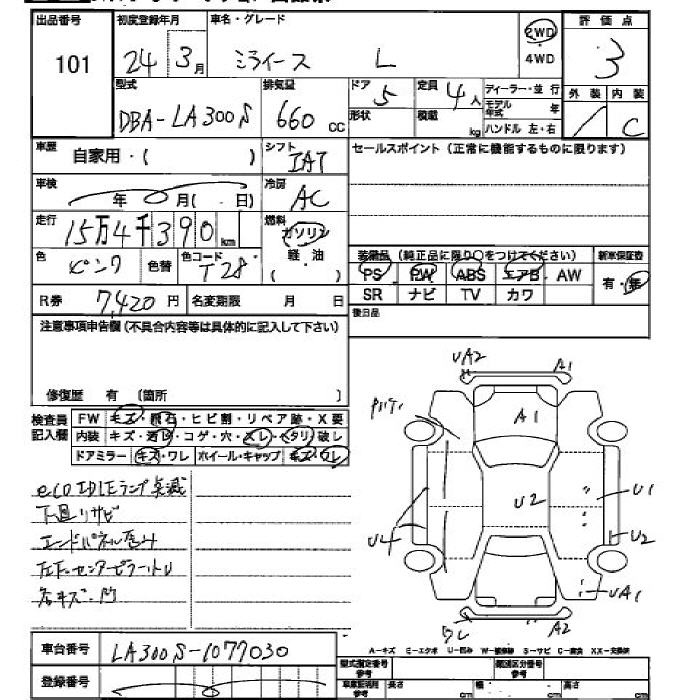 出品番号 初度登録年月 車名・グレード 2WD 4WD 評価点
101 24 3月 ミライース L 3
型式 排気量 ドア 定員 ディーラー・並行 外装 内装
DBA-LA300S 660cc 5 4人 モデル年式 年 / C
形状 積載 kg ハンドル 左・右
車歴 自家用・( ) シフト IAT セールスポイント(正常に機能するものに限ります)
車検 年 月( 日) 冷房 AC
走行 15万4千390km 燃料 ガソリン
色 ピンク 色替 色コード T28 軽・油 ( )
装備品(純正品に限り○をつけてください) 新車保証書
PS PW ABS エアB AW 有・無
SR ナビ TV カワ
R券 7,420円 名変期限 月 日 後日品
注意事項申告欄(不具合内容等は具体的に記入して下さい)
修復歴 有 〔箇所 〕
検査員記入欄 FW キズ・飛石・ヒビ割・リペア跡・X要
内装 キズ・汚れ・コゲ・穴・スレ・ヘタリ・破レ
ドアミラー キズ・ワレ ホイール・キャップ キズ・ワレ
eco IDLEランプ点滅
下廻りサビ
エンドパネル凹み
左F.センターピラートリ
各キズ・凹
UA2 A1
A1
U2
U1
U4 U2
UA1
ワレ A2
A-キズ E-エクボ U-凹み W-補修跡 S-サビ C-腐食 XX-交換済
車台番号 LA300S-1077030
型式指定番号 参考 類別区分番号 参考
登録番号
参考 長さ cm 幅 cm 高さ cm